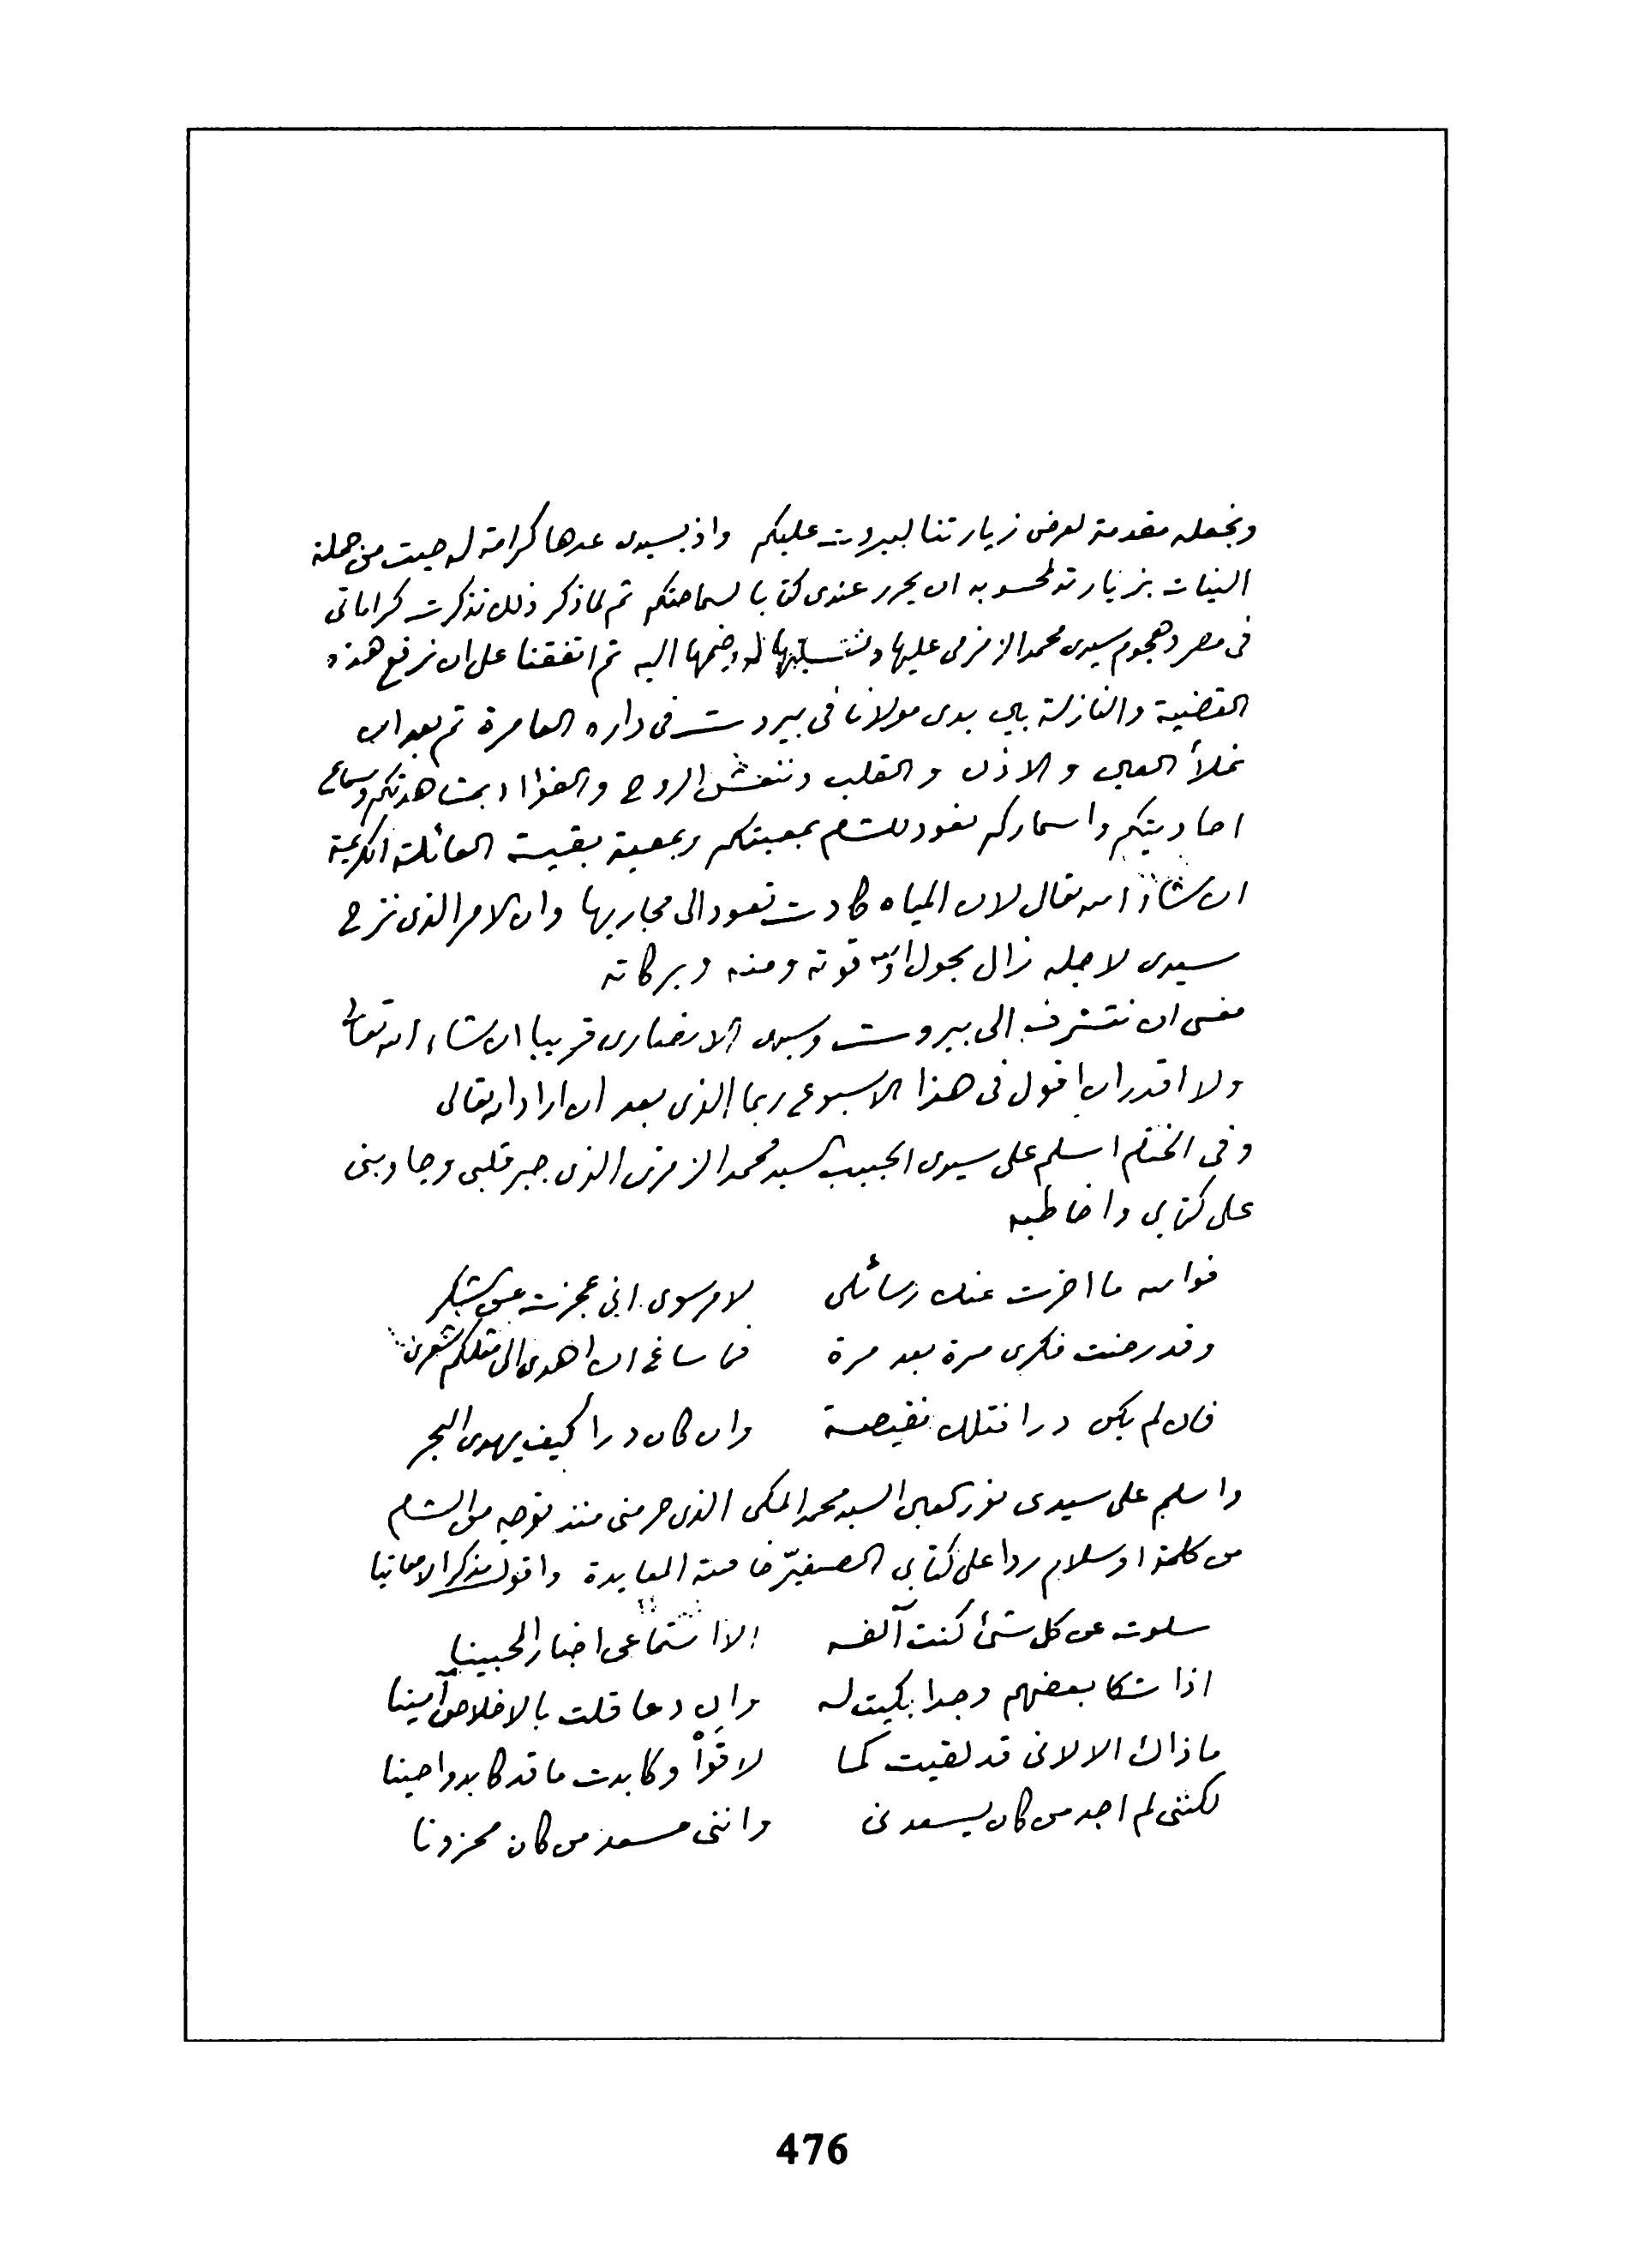 ونجعله مقدمة لعرض زيارتنا لبيروت عليكم واذ بسيدى عدها كرامة له حيث من جملة
النيات بزيارته لمحسوبه ان يحرر عندى كتابا لسماحتكم ثم لما ذكر ذلك تذكرت كراماتى
فى مصر وهجوم سيدى محمد الزمزمى عليها ونسبتها له وضمها اليه ثم اتفقنا على ان نرفع هذه
القضية والنازلة بين يدى مولانا فى بيروت فى داره العامرة ثم بعد ان
نملأ العين والاذن والقلب وننعش الروح والفؤاد بمشاهدتكم وسماع
احاديثكم واسماركم نعود للشام بمعيتكم وبمعية بقية العائلة الكريمة
ان شاء الله تعالى لان المياه كادت تعود الى مجاريها وان الامر الذى نزح
سيدى لاجله زال بحول الله وقوته ومنه وبركاته
فعسى ان نتشرف الى بيروت وسيدى الانصارى قريبا ان شاء الله تعالى
ولا اقدر ان اقول فى هذا الاسبوع ربما الذى بعد ان اراد الله تعالى
وفى الختام اسلم على سيدى الحبيب السيد محمد الزمزمى الذى جبر قلبى وجاوبنى
على كتابى واخاطبه
فوالله ما اخرت عنك رسائلى لامر سوى انى عجزت عن الشكر
وقد رضت فكرى مرة بعد مرة فما ساغ ان اهدى الى مثلكم شعرى
فان لم يكن درا فتلك نقيصة وان كان درا كيف يهدى البحر
واسلم على سيدى نور العين السيد محمد المكى الذى حرمنى منذ توجه من الشام
من كلمة او سلام ردا على كتابى الصغير المعايدة واقول مذكرا لا معاتبا
سلوت عن كل شئ كنت آلفه الا استماعى اخبار المحبينا
اذا شكا بعضهم وجدا بكيت له وان دعا قلت بالاخلاص آمينا
ماذاك الا لانى قد لقيت كما لاقوا وكابدت ما قد كابدوا حينا
لكننى لم اجد من كان يسعدنى واننى مسعد من كان محزونا
476